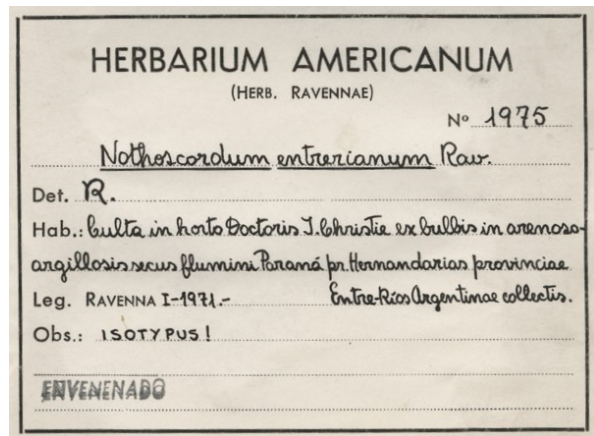 HERBARIUM AMERICANUM
(HERB. RAVENNAE)
Nº 1975
Nothoscordum entrerianum Rav.
Det. R.
Hab.: Culta in horto Doctoris I. Christie ex bulbis in arenoso-
argillosis secus flumini Paraná pr. Hernandarias provinciae
Leg. RAVENNA I-1971.- Entre-Ríos Argentinae collectis.
Obs.: ISOTYPUS!
ENVENENADO